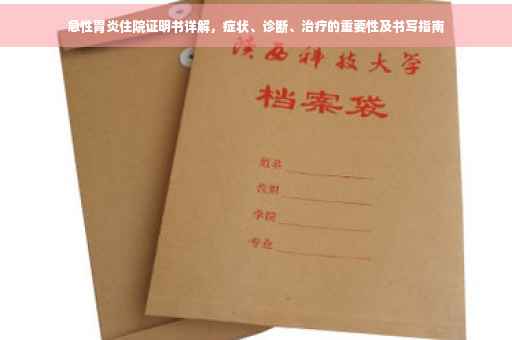 急性胃炎住院证明书详解，症状、诊断、治疗的重要性及书写指南
陕西科技大学
档案袋
姓名
学院
专业